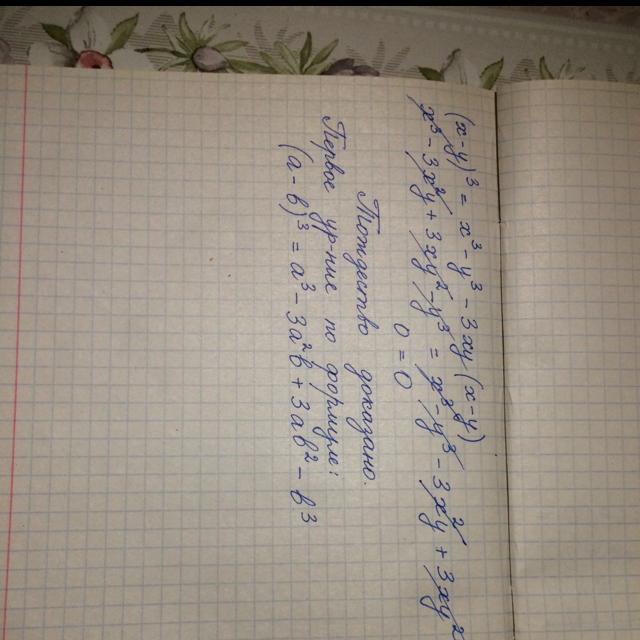 (x-y)³ = x³ - y³ - 3xy(x-y)
x³ - 3x²y + 3xy² - y³ = x³ - y³ - 3x²y + 3xy²
0 = 0
Тождество доказано.
Первое ур-ние по формуле:
(a - b)³ = a³ - 3a²b + 3ab² - b³